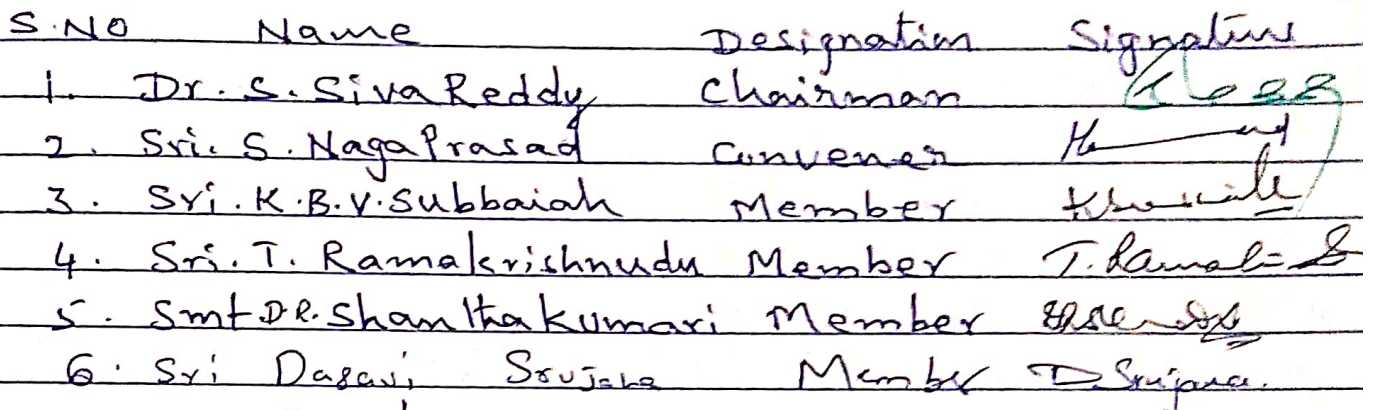 S.NO Name Designation Signature
1. Dr. S. Siva Reddy Chairman
2. Sri. S. Naga Prasad Convener
3. Sri. K.B.V. Subbaiah Member
4. Sri. T. Ramakrishnudu Member
5. Smt D.R. Shantha Kumari Member
6. Sri Dasari Srujana Member D. Srujana.